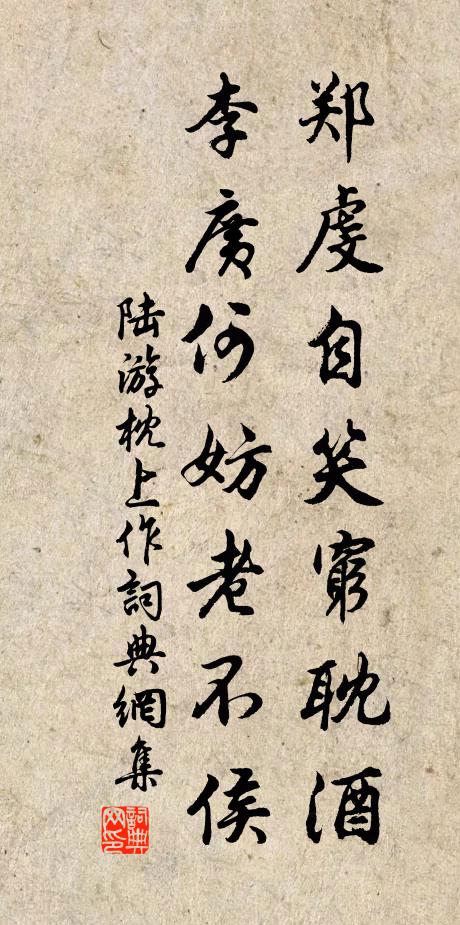 郑虔自笑穷耽酒
李广何妨老不侯
陆游枕上作词典网集
词典网印